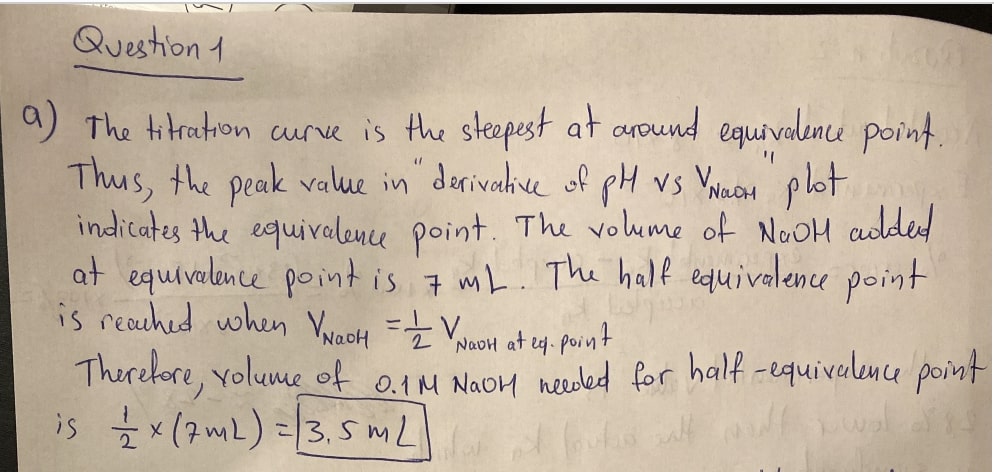 Question 1
a) The titration curve is the steepest at around equivalence point.
Thus, the peak value in "derivative of pH vs VNaOH" plot
indicates the equivalence point. The volume of NaOH added
at equivalence point is 7 mL. The half equivalence point
is reached when VNaOH = 1/2 VNaOH at eq. point
Therefore, volume of 0.1 M NaOH needed for half-equivalence point
is 1/2 × (7mL) = 3.5 mL